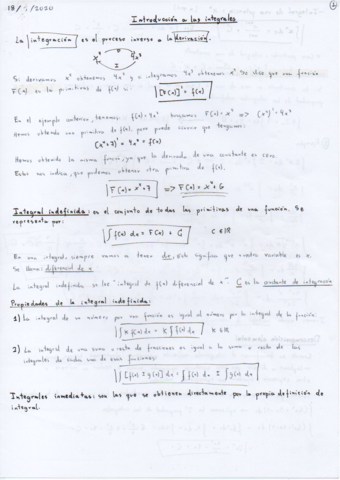 Introducción a las integrales
La integración es el proceso inverso a la derivación.
x⁴ 4x³
I
Si derivamos x⁴ obtenemos 4x³ y si integramos 4x³ obtenemos x⁴. Se dice que una función
F(x) es la primitiva de f(x) si [F(x)]' = f(x)
En el ejemplo anterior, tenemos f(x)=4x³
Hemos obtenido una primitiva de f(x), pero puede ocurrir que tengamos:
Hemos obtenido la misma función, ya que la derivada de una constante es cero.
Esto nos indica, que podemos obtener otra primitiva de f(x).
Integral indefinida: es el conjunto de todas las primitivas de una función. Se
representa por:
∫ f(x) dx = F(x) + C C ∈ ℝ
En una integral siempre vamos a tener dx, esto significa que nuestra variable es x.
Se llama: diferencial de x
La integral indefinida se lee "integral de f(x) diferencial de x". C es la constante de integración
Propiedades de la integral indefinida:
1) La integral de un número por una función es igual al número por la integral de la función:
∫ K f(x) dx = K ∫ f(x) dx K ∈ ℝ
2) La integral de una suma o resta de funciones es igual a la suma o resta de las
integrales de cada una de esas funciones:
∫ [f(x) ± g(x)] dx = ∫ f(x) dx ± ∫ g(x) dx
Integrales inmediatas: son las que se obtienen directamente por la propia definición de
integral.